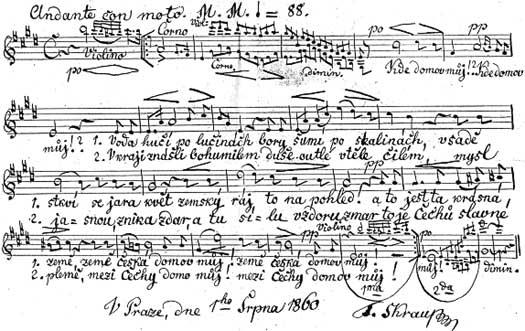 Andante con moto. M. M. ♩ = 88.
Violino Corno Viol:
po Corno dimin. po pp
Kde domov můj!? Kde domov
můj!? 1. Voda hučí po lučinách bory šumí po skalinách, v sadě
2. V kraji znáš-li bohumilém duše outlé v těle čilém, mysl
1. stkví se jara květ zemský ráj to na pohled! a to jest ta krásná,
2. ja=snou, znik a zdar, a tu sí=lu vzdoru zmar to je Čechů slavné
Violino pp
1. země, země česká domov můj! země česká domov můj!
2. plémě, mezi Čechy domov můj! mezi Čechy domov můj!
po můj! dimin.
1ma 2da
V Praze, dne 1ho Srpna 1860 F. Škraup